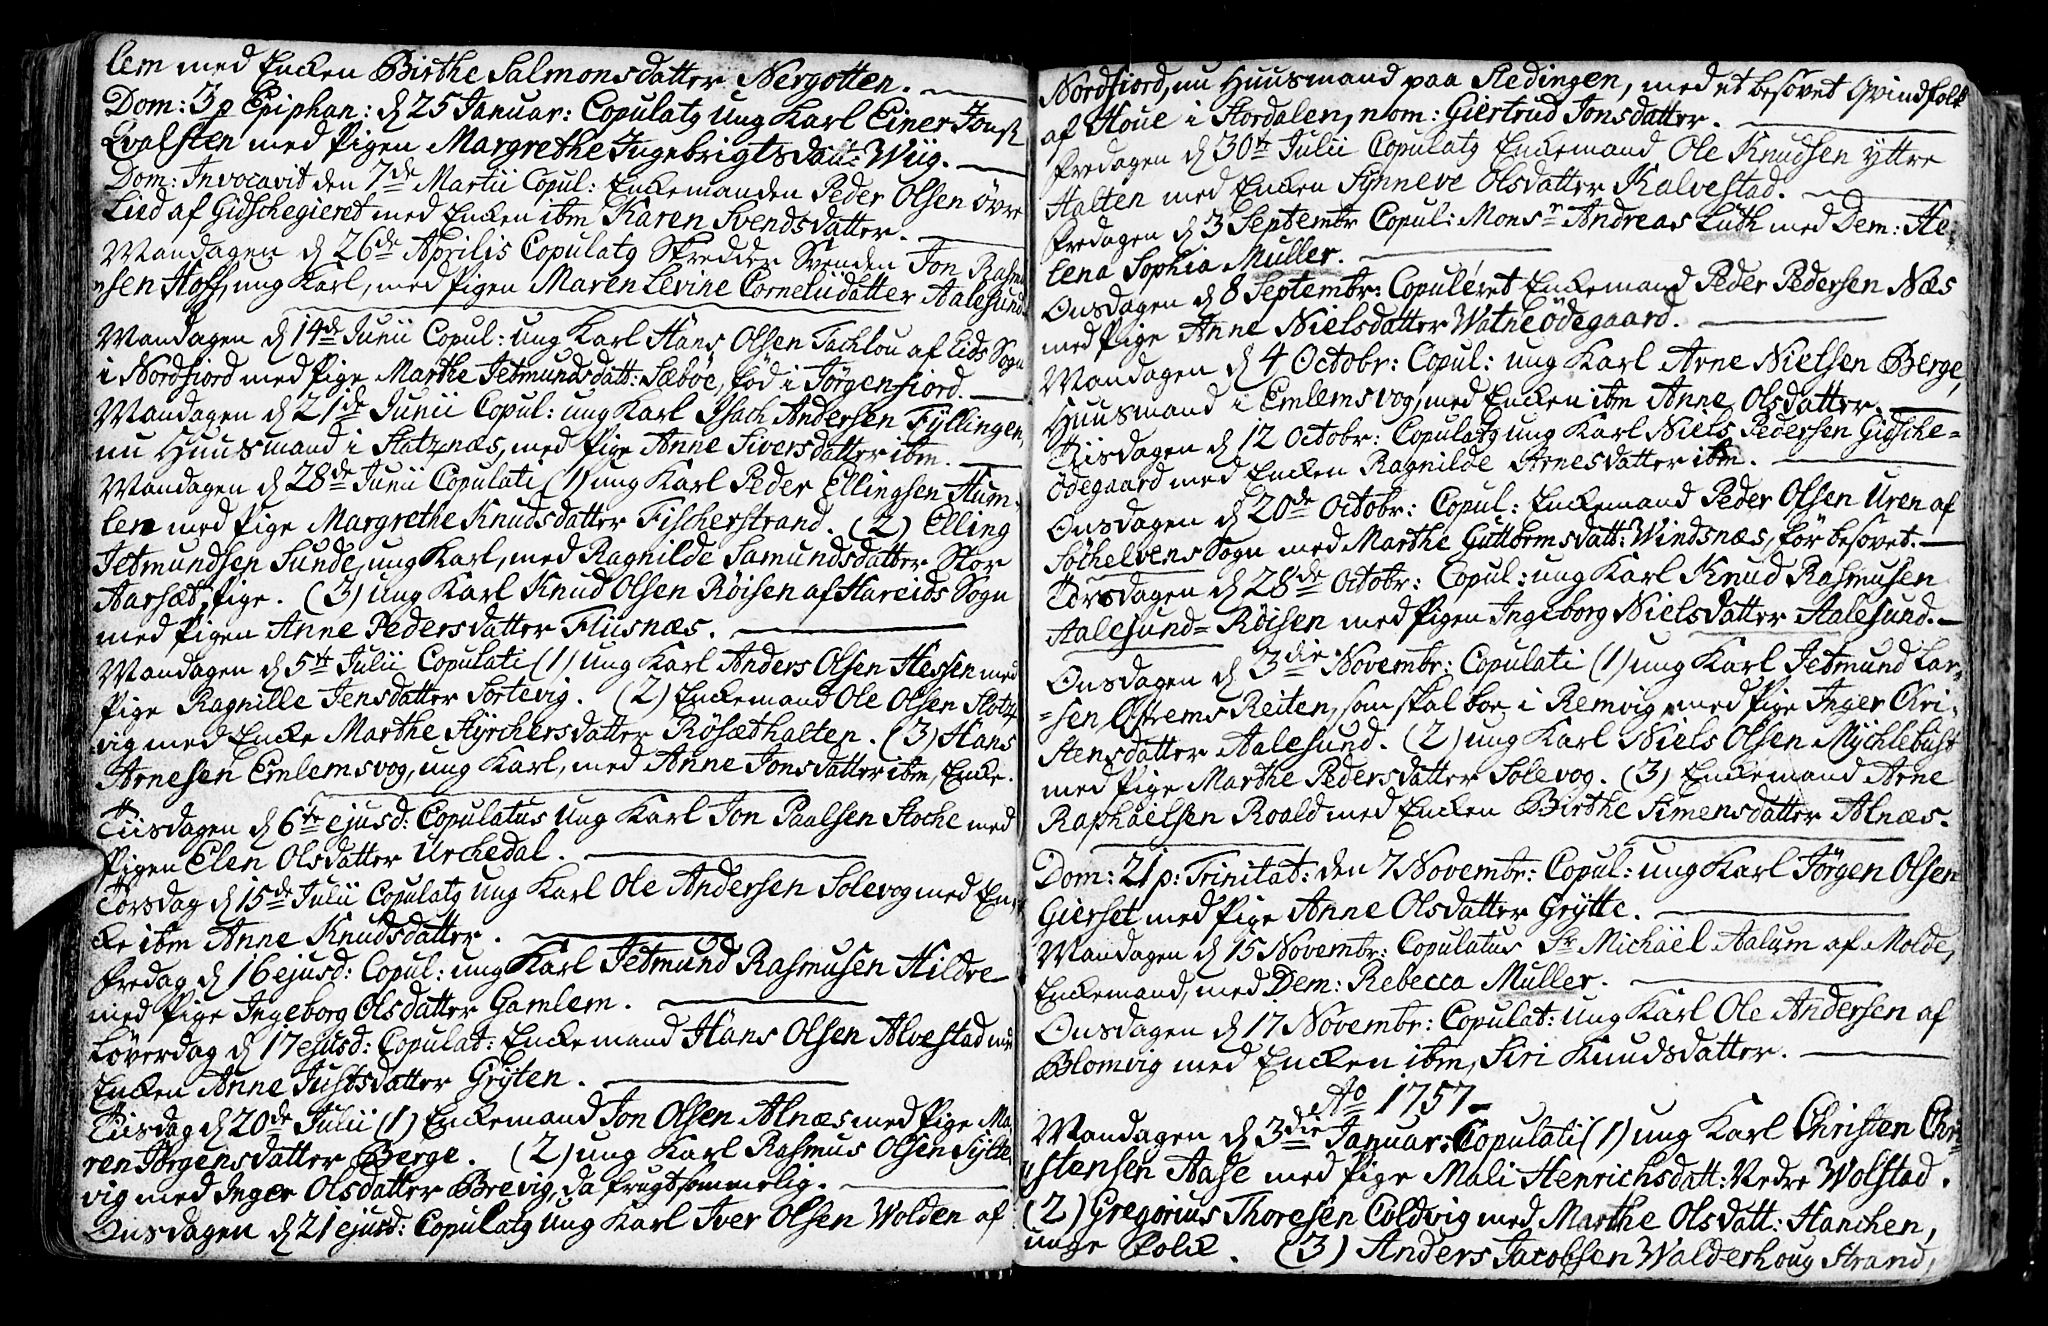 lem med Encken Birthe Salmonsdatter Nergotten.
Dom: 3 p Epiphan: d 25 Januar: Copulatg ung Karl Einer Jonss
Qvalsten med Pigen Margrethe Ingebrigtsdatt: Wiig.
Dom: Invocavit den 7de Martii Copul: Enckemanden Peder Olsen øvre
Lied af Gidschegieret med Encken ibm Karen Svendsdatter.
Mandagen d 26de Aprilis Copulatg Skredder Svenden Jon Rasmu
-sen Hoff, ung Karl, med Pigen Maren Levine Corneliidatter Aalesund.
Mandagen d 14de Junii Copul: ung Karl Hans Olsen Tachlou af Eids Sogn
i Nordfiord med Pige Marthe Jetmundsdatt: Sæbøe, fød i Jørgenfiord.
Mandagen d 21de Junii Copul: ung Karl Isach Andersen Fyllingen,
nu Huusmand i Slatznæs, med Pige Anne Siversdatter ibm.
Mandagen d 28de Junii Copulati (1) ung Karl Peder Ellingsen Hum-
len med Pige Margrethe Knudsdatter Fischerstrand. (2) Elling
Jetmundsen Sunde, ung Karl, med Ragnilde Samundsdatter Stor
Aarsæt, Pige. (3) ung Karl Knud Olsen Røisen af Hareids Sogn
med Pigen Anne Pedersdatter Fliisnæs.
Mandagen d 5te Julii Copulati (1) ung Karl Anders Olsen Hessen med
Pige Ragnille Jensdatter Sortevig. (2) Enckemand Ole Olsen Slotz
vig med Encke Marthe Hyrchersdatter Røsæthalten. (3) Hans
Arnesen Emlemsvog, ung Karl, med Anne Jonsdatter ibm, Encke.
Tiisdagen d 6te ejusd: Copulatus ung Karl Jon Paalsen Stoche med
Pigen Elen Olsdatter Urchedal.
Torsdag d 15de Julii Copulatg ung Karl Ole Andersen Solevog med En-
cke ibm Anne Knudsdatter.
Fredag d 16 ejusd: Copul: ung Karl Jetmund Rasmusen Hildre
med Pige Ingeborg Olsdatter Gamlem.
Løverdag d 17 ejusd: Copulat: Enckemand Hans Olsen Alvestad med
Encken Anne Justsdatter Gryten.
Tiisdag d 20de Julii (1) Enckemand Jon Olsen Alnæs med Pige Ma-
ren Jørgensdatter Berge. (2) ung Karl Rasmus Olsen Sylte
vig med Inger Olsdatter Brevig, da frugtsommelig.
Onsdagen d 21 ejusd: Copulatg ung Karl Iver Olsen Wolden af
Nordfiord, nu Huusmand paa Sledingen, med et besovet Qvindfolk
af Houe i Stordalen, nom: Giertrud Jonsdatter.
Fredagen d 30te Julii Copulatg Enckemand Ole Knudsen yttre
Halten med Encken Synneve Olsdatter Kalvestad.
Fredagen d 3 Septembr Copul: Monsr Andreas Luth med Dem: He-
lena Sophia Muller.
Onsdagen d 8 Septembr: Copuléret Enckemand Peder Pedersen Næs
med Pige Anne Nielsdatter Watneødegaard.
Mandagen d 4 Octobr: Copul: ung Karl Arne Nielsen Berge,
Huusmand i Emlemsvog, med Encken ibm Anne Olsdatter.
Tiisdagen d 12 Octobr: Copulatg ung Karl Niels Pedersen Gidsche=
Ødegaard med Encken Ragnilde Arnesdatter ibm.
Onsdagen d 20de Octobr: Copul: Enckemand Peder Olsen Uren af
Søchelvens Sogn med Marthe Guttormsdatt: Windsnæs, før besovet.
Torsdagen d 28de Octobr: Copul: ung Karl Knud Rasmusen
Aalesund=Røisen med Pigen Ingeborg Nielsdatter Aalesund.
Onsdagen d 3die Novembr: Copulati (1) ung Karl Jetmund Lar-
=sen Østrems Reiten, som skal boe i Remvig, med Pige Inger Chri-
stensdatter Aalesund. (2) ung Karl Niels Olsen Mychlebust
med Pige Marthe Pedersdatter Solevog. (3) Enckemand Arne
Raphaelsen Roald med Encken Birthe Simensdatter Alnæs.
Dom: 21 p: Trinitat: den 7 Novembr: Copul: ung Karl Jörgen Olsen
Gierset med Pige Anne Olsdatter Grytte.
Mandagen d 15 Novembr: Copulatus Sr Michäel Aalum af Molde,
Enckemand, med Dem: Rebecca Muller.
Onsdagen d 17 Novembr: Copulat: ung Karl Ole Andersen af
Blomvig med Encken ibm, Siri Knudsdatter.
Ao 1757
Mandagen d 3die Januar: Copulati (1) ung Karl Christen Chri-
stensen Aase med Pige Mali Henrichsdatt: Nedre Wolstad.
(2) Gregorius Thoresen Coldvig med Marthe Olsdatt: Hanchen,
unge Folck. (3) Anders Jacobsen Walderhoug Strand,